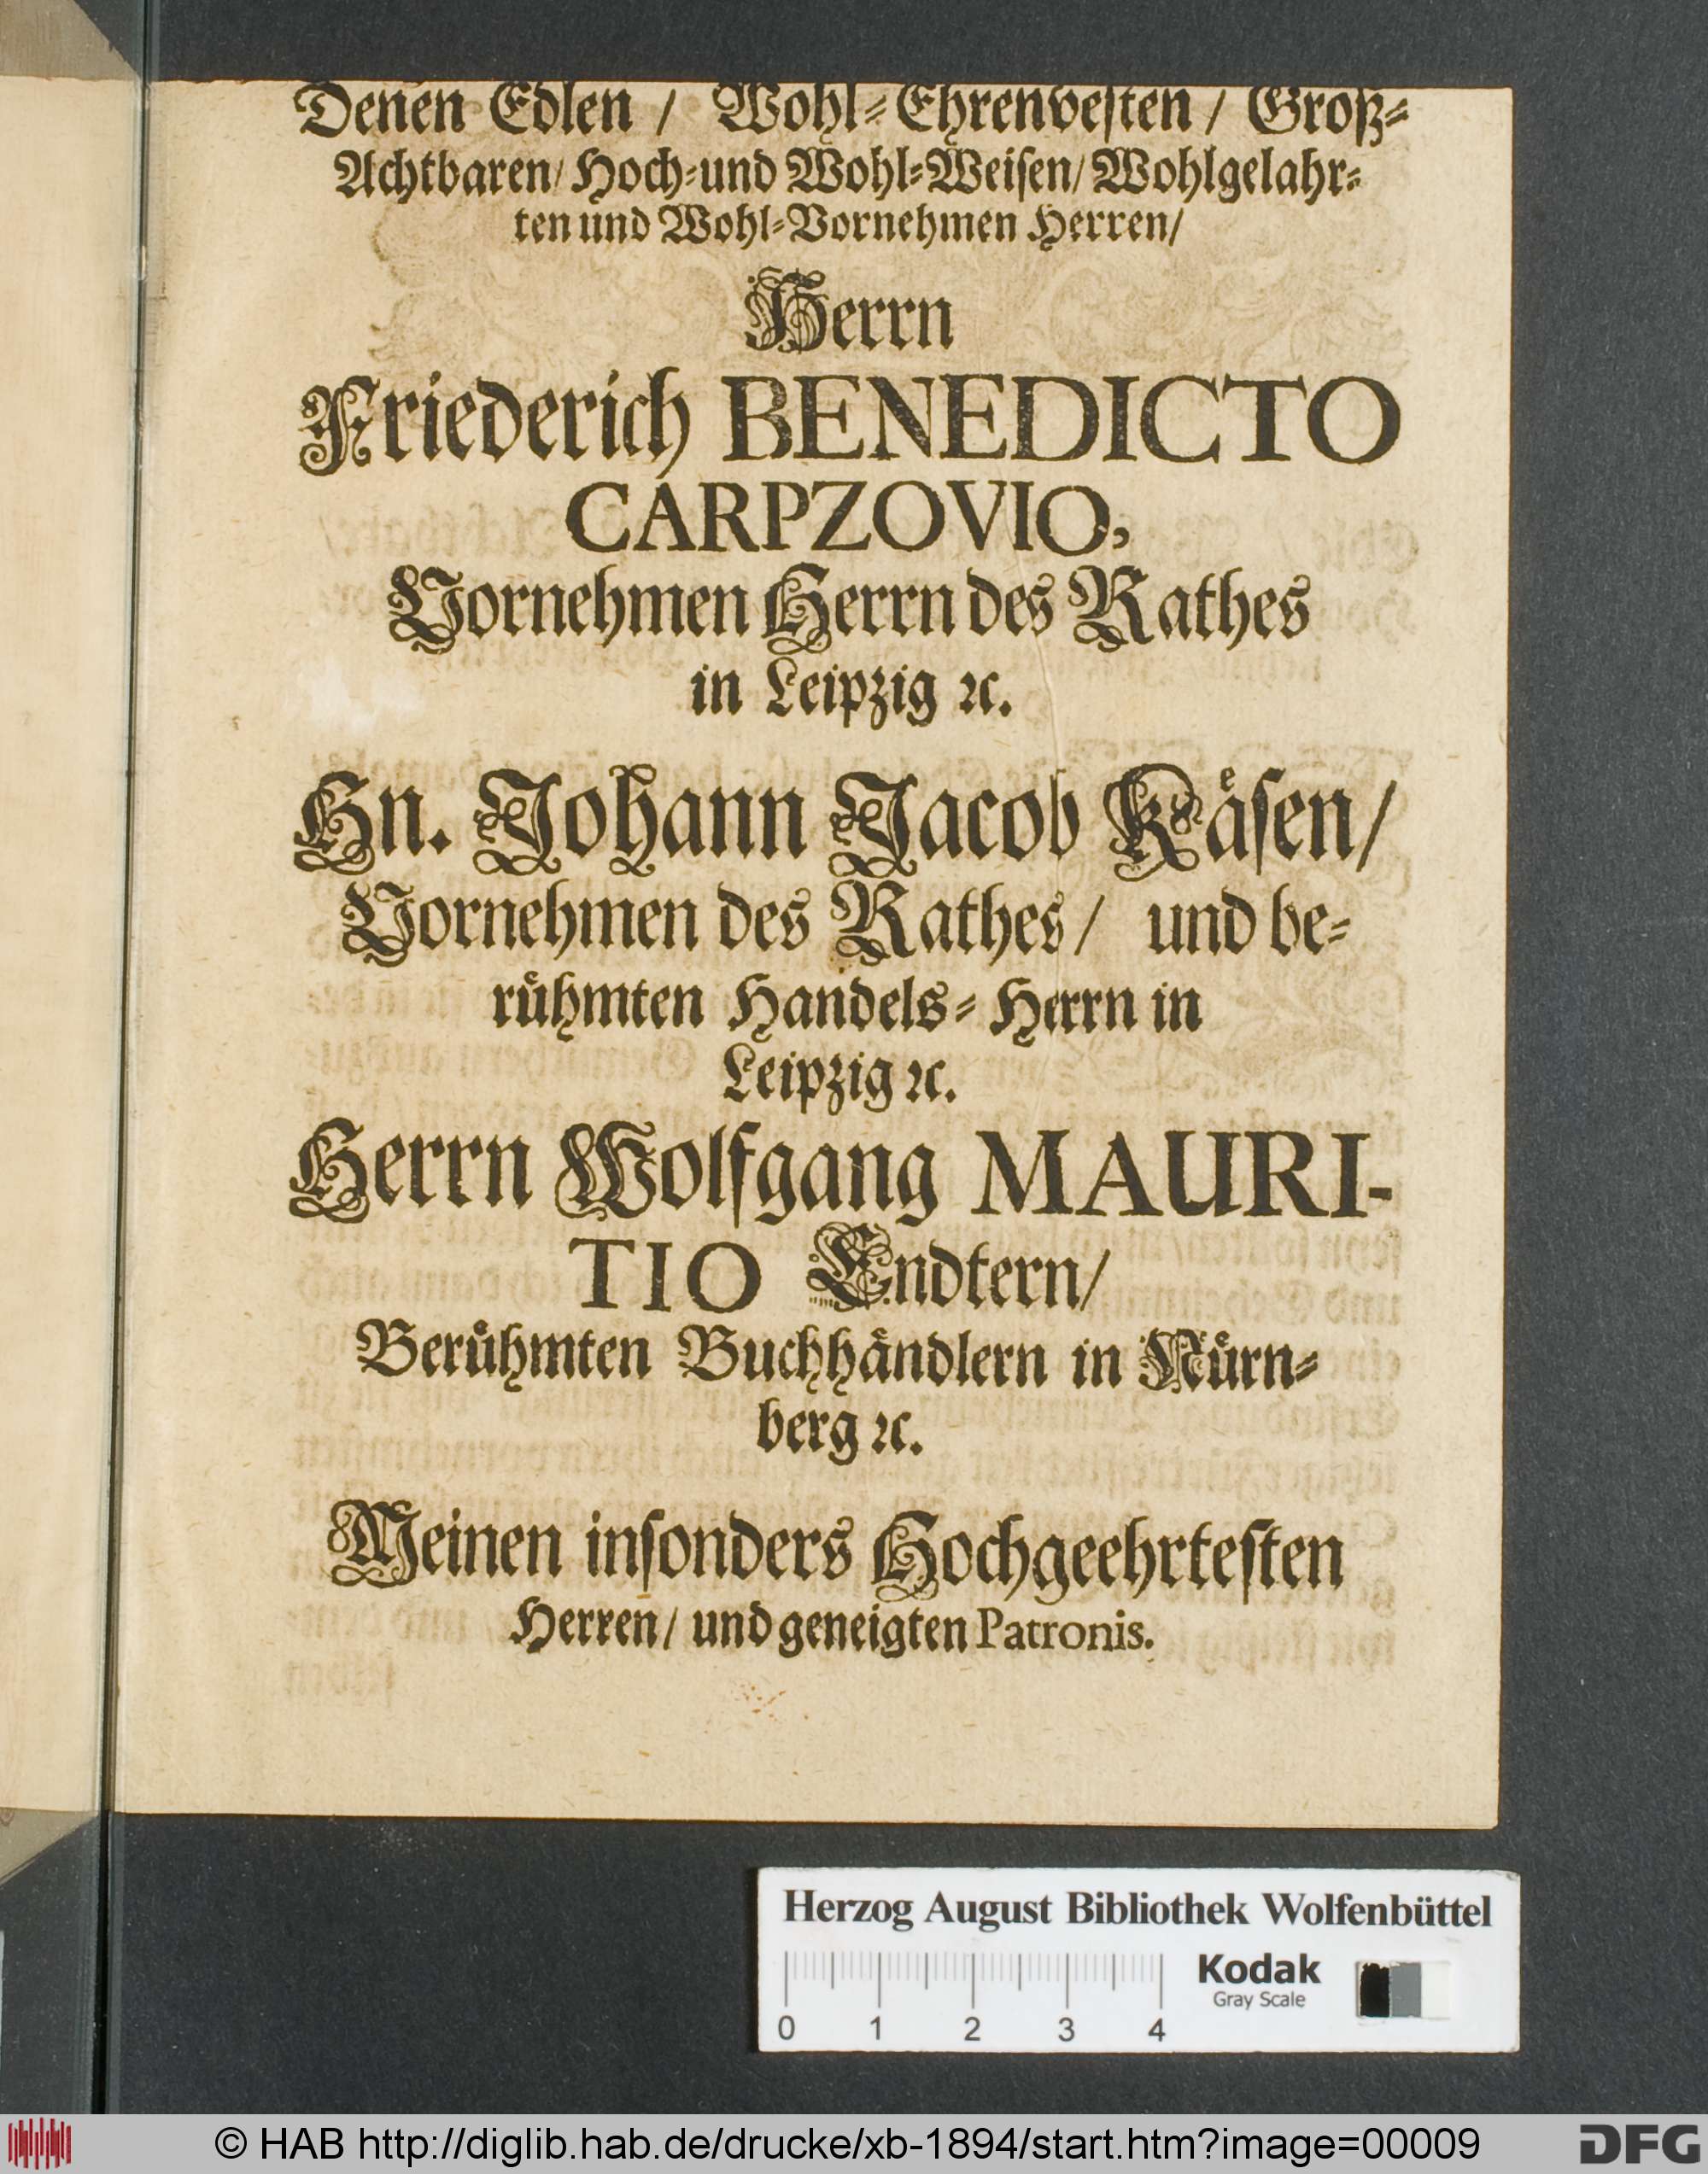 Denen Edlen / Wohl-Ehrenvesten / Groß-
Achtbaren / Hoch-und Wohl-Weisen / Wohlgelahr-
ten und Wohl-Vornehmen Herren /
Herrn
Friederich BENEDICTO
CARPZOVIO,
Vornehmen Herrn des Rathes
in Leipzig ꝛc.
Hn. Johann Jacob Kåsen /
Vornehmen des Rathes / und be-
růhmten Handels-Herrn in
Leipzig ꝛc.
Herrn Wolfgang MAURI-
TIO Endtern /
Berůhmten Buchhåndlern in Nůrn-
berg ꝛc.
Meinen insonders Hochgeehrtesten
Herren / und geneigten Patronis.
Herzog August Bibliothek Wolfenbüttel
Kodak
Gray Scale
0 1 2 3 4
© HAB http://diglib.hab.de/drucke/xb-1894/start.htm?image=00009
DFG